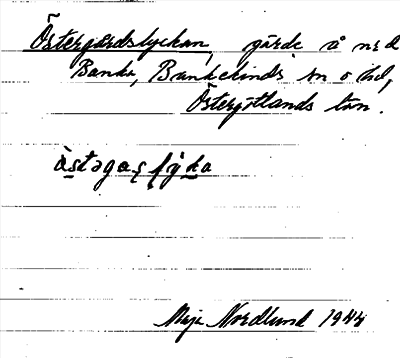 Östergårdslyckan, gärde å ned
Banka, Bankekinds sn o hd,
Östergötlands län.
Maja Nordlund 1944